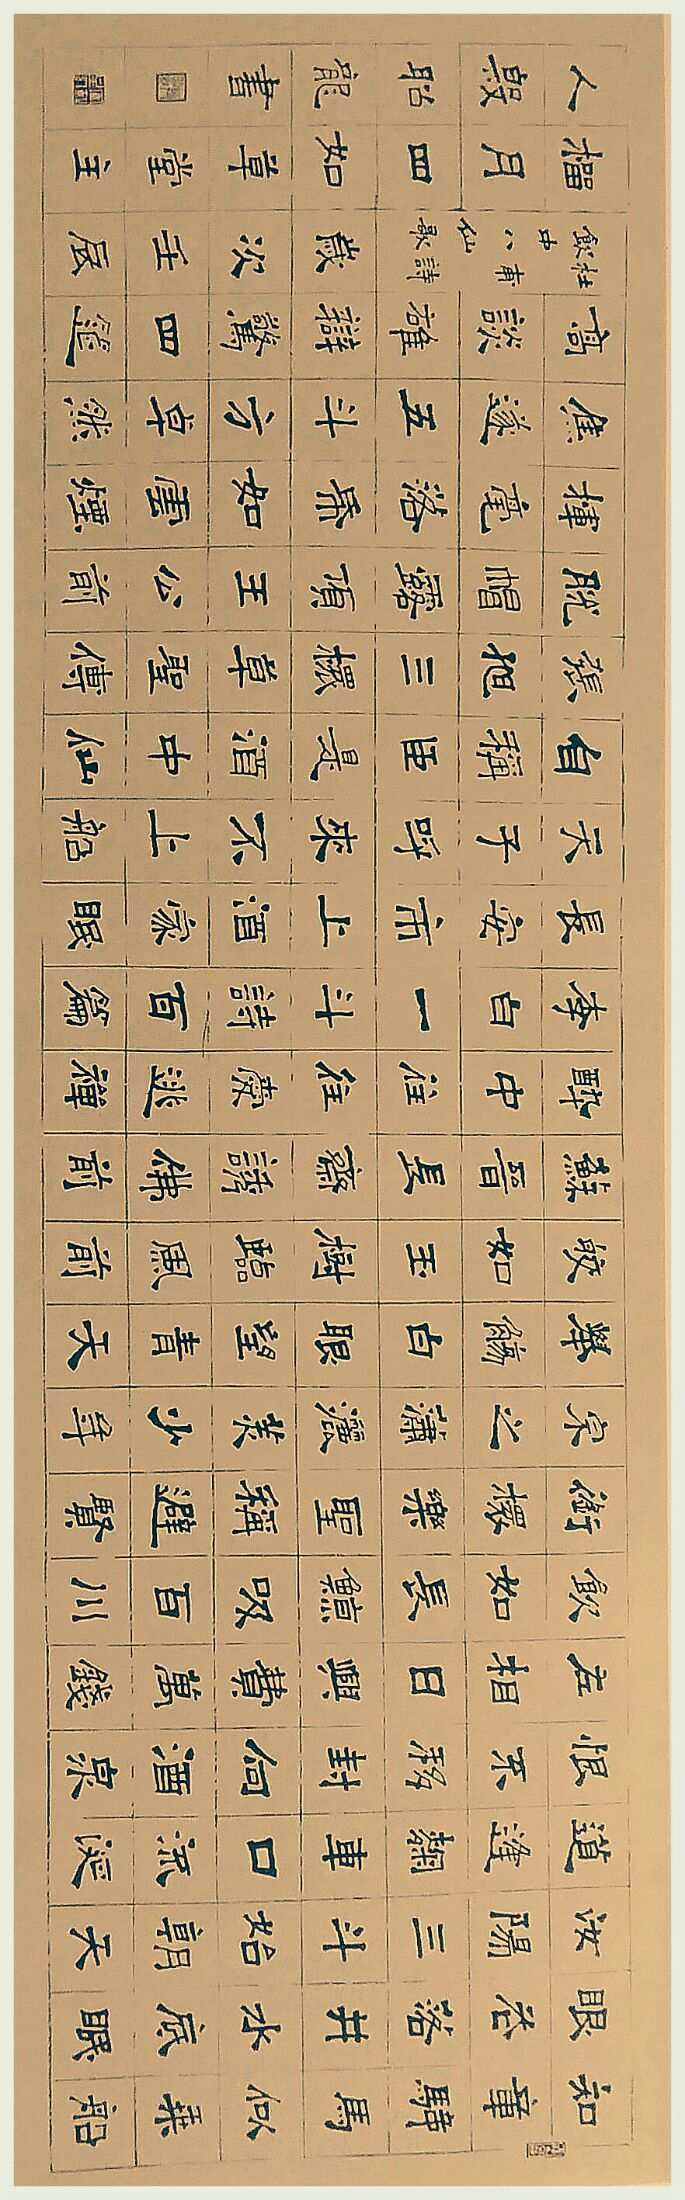 知章騎馬似乗船
眼花落井水底眠
汝陽三斗始朝天
道逢麴車口流涎
恨不移封向酒泉
左相日興費萬錢
飲如長鯨吸百川
銜杯樂聖稱避賢
宗之瀟灑美少年
舉觴白眼望青天
皎如玉樹臨風前
蘇晉長齋繡佛前
醉中往往愛逃禪
李白一斗詩百篇
長安市上酒家眠
天子呼來不上船
自稱臣是酒中仙
張旭三杯草聖傳
脫帽露頂王公前
揮毫落紙如雲煙
焦遂五斗方卓然
高談雄辯驚四筵
杜甫詩
飲中八仙歌
歲次壬辰
榴月四如草堂主
人毅貽龍書